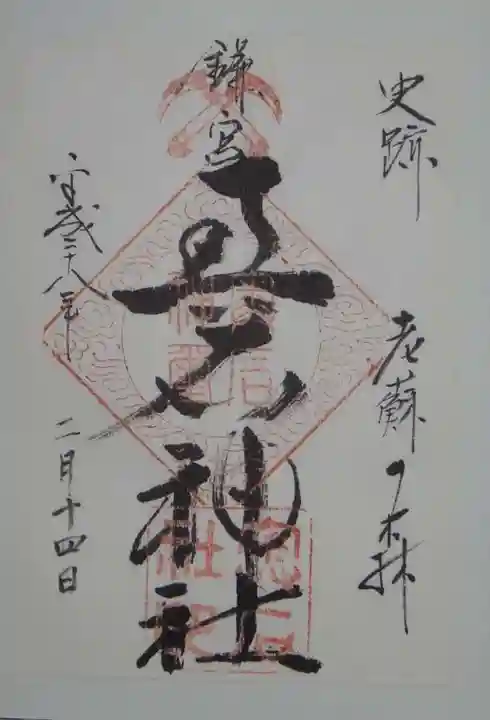 史跡 老蘇ノ森
鎌宮
奥石神社
平成二十八年 二月十四日